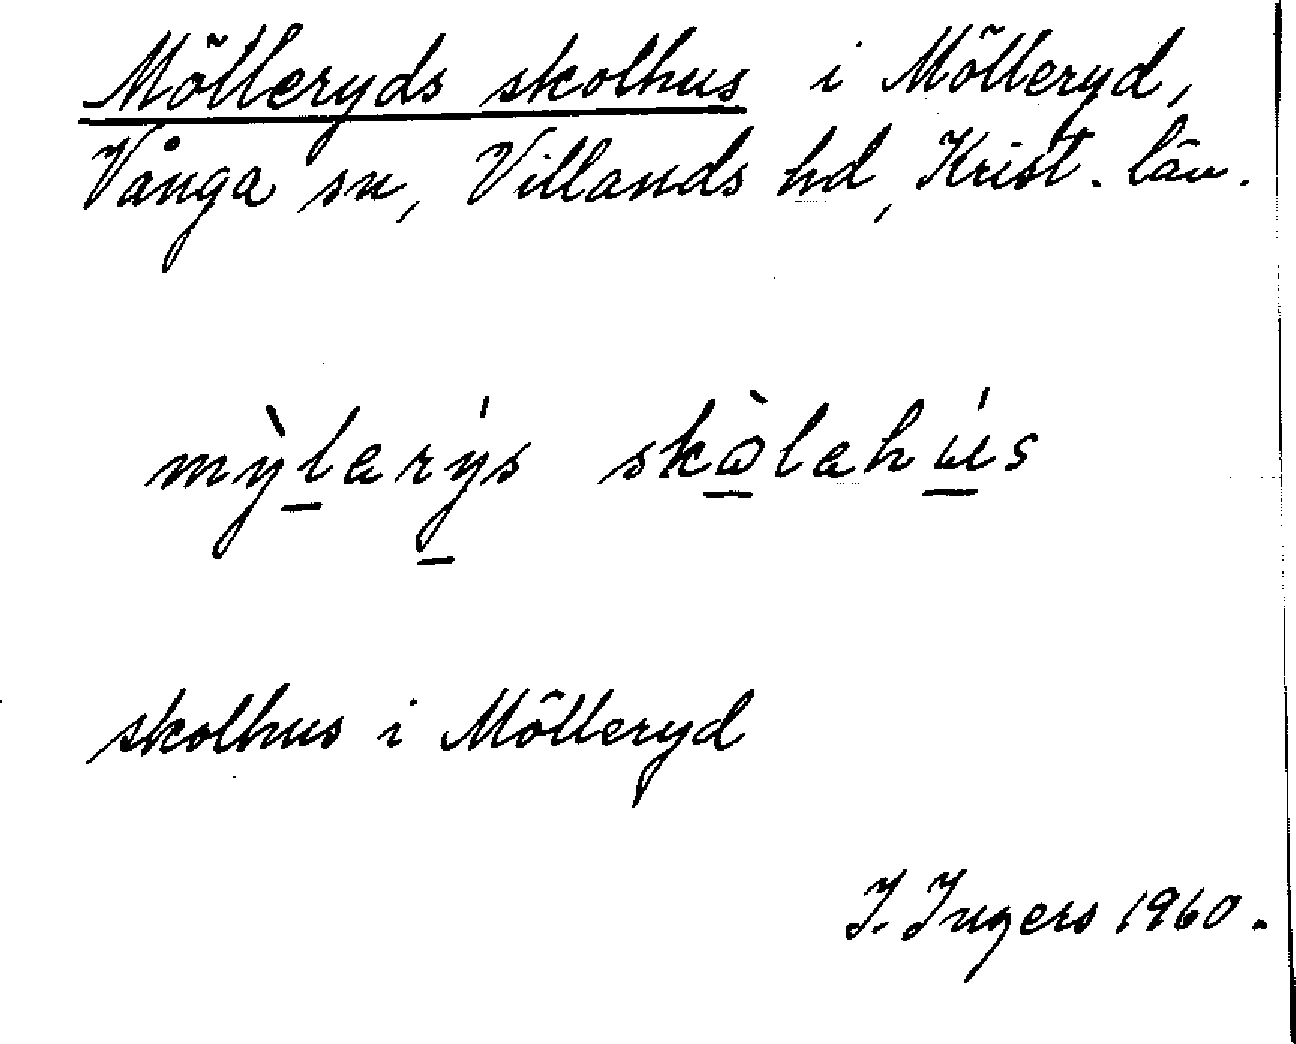 Mölleryds skolhus i Mölleryd,
Vånga sn, Villands hd, Krist. län.
mỳl̲arý̲s skò̲lahú̲s
skolhus i Mölleryd
I. Ingers 1960.